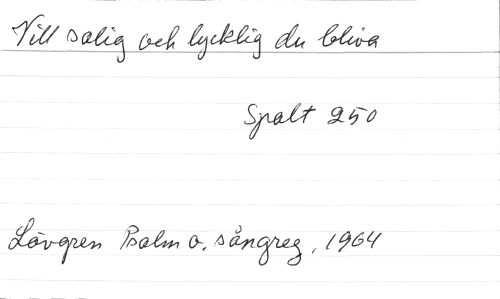 Vill salig och lycklig du bliva
Spalt 250
Lövgren Psalm o. sångreg, 1964